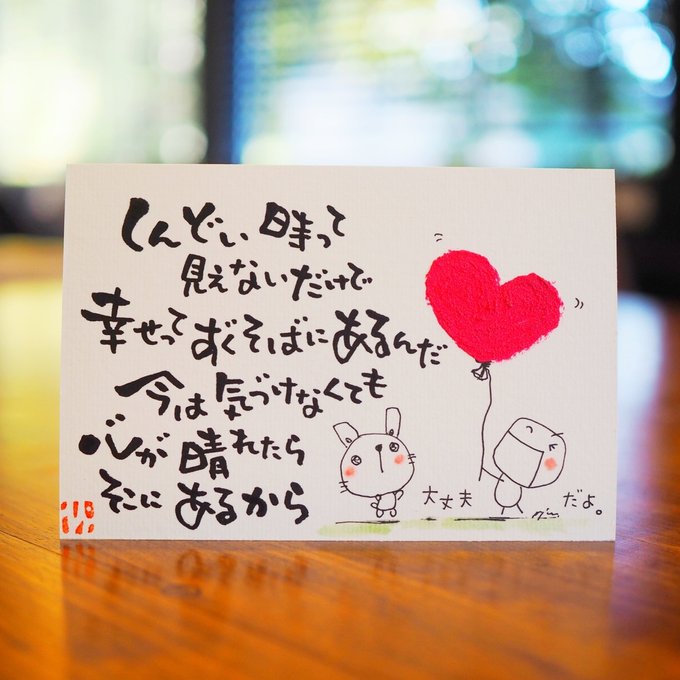 しんどい時って
見えないだけで
幸せってすぐそばにあるんだ
今は気づけなくても
心が晴れたら
そこにあるから
大丈夫 だよ。